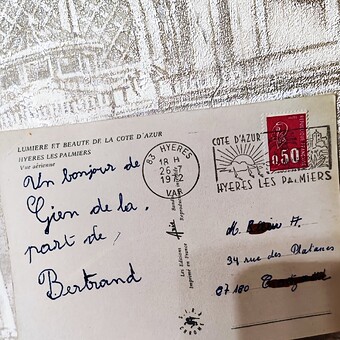 LUMIERE ET BEAUTE DE LA COTE D'AZUR
HYERES LES PALMIERS
Vue aérienne
Un bonjour de
Gien de la
part de
Bertrand
83 HYERES
18 H
26-7
1972
VAR
COTE D'AZUR
HYERES LES PALMIERS
0,50
Les Editions
Imprimé en France
M. A.
94 rue des Platanes
87180